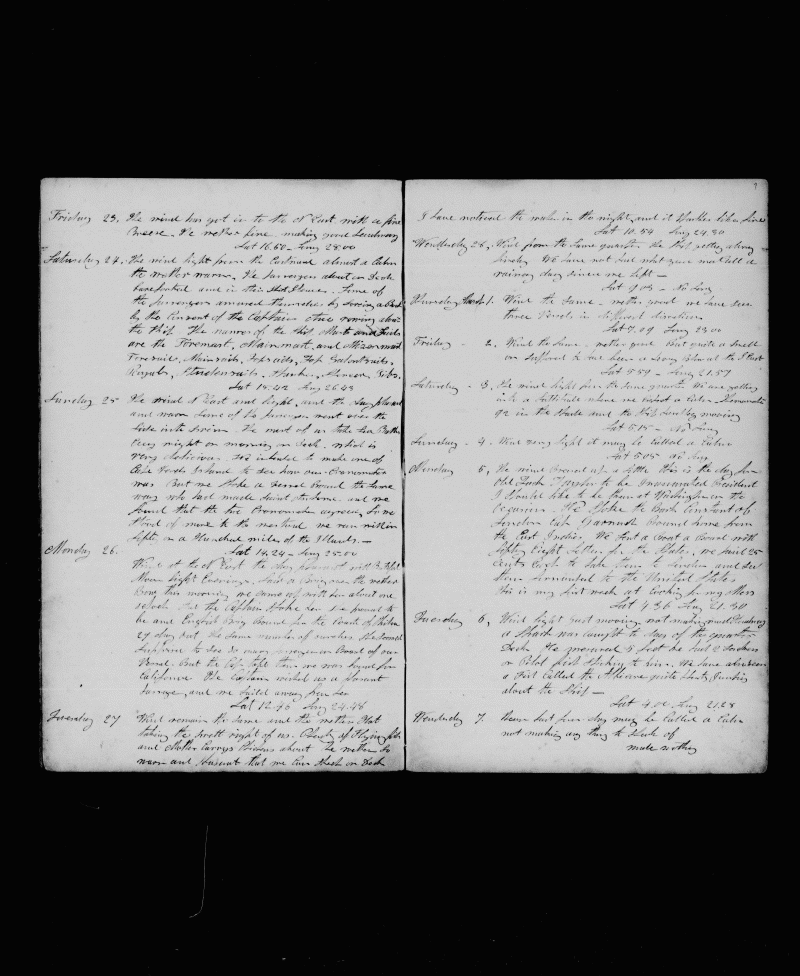 Friday 23. The wind has got in to the N East with a fine
Breese. The wether fine making good Leadaway
Lat 16.50 - Long 28.00
Saturday 24. The wind light from the Eastward almost a Calm
the wether warm. The passengers about on Deck
barefooted and in their Shirt Sleeves. Some of
the passengers amused themselves by
by the Consent of the Captain others rowing about
the Ship. The names of the Ship Masts and Sails
are the Foremast, Mainmast, and Mizenmast
Foresails, Mainsails, Topsails, Top Gallantsails,
Royals, Studensails, Jibs.
Lat 15.42 Long 26.43
Sunday 25 The wind N East and light, and the Day pleasant
and warm Some of the passengers went over the
Side into Swim. The most of us take Sea Baths
Every night or morning on Deck. which is
very delicious. We intended to make one of
Cape Verde Island to see how our Cronometer
was But we Spoke a vessel Bound the Same
way who had made Saint and we
found that the two Cronometers agreed, So we
Stood of more to the westward. we run within
fifty or a Hundred miles of the Islands.—
Lat 14.24 - Long 25.00
Monday 26. Wind at the N East the day pleasant with Beautiful
Moon light Evenings. Said a Brig over the wether
Bow this morning we came up with her about one
oclock. But the Captain Spoke her She proved to be
be and English Brig Bound for the Coast of
27 days out the Same number of ourselves. He
Suppose to See So many passengers on Board of our
Vessel. But the Cap told them we was bound for
California. The Captain wished us a pleasant
Passage, and we Sailed away from her
Lat 12.46 Long 24.48
Tuesday 27 Wind remain the Same and the wether Hot
taking the prett right of us. Plenty of Flying fish
and Mother Carrys Chickens about. The wether So
warm and pleasant that we can Sleep on Deck
7
I have noticed the water in the night, and it Sparkles like fire
Lat 10.54 Long 24.30
Wendesday 28, Wind from the Same quarter. the Ship getting along
finely We have not had what you may Call a
raining day since we left —
Lat 9.03 - No Long
Thursday March 1. Wind the Same - wether good we have seen
three Vessels in different directions
Lat 7.09 Long 23.00
Friday - 2. Wind the Same - wether good But quite a Swell
on Suffored to have been a Long Blow at the S East
Lat 5.59 - Long 21.57
Saturday - 3, the wind light from the Same quarter. We are getting
into a Lattitude where we Expect a Calm. Thermometer
92 in the Shade and the Ship Scarsley moving
Lat 5.15 - No Long
Sunday - 4. Wind very light it may be called a Calm
Lat 5.05 No Long
Monday 5, The wind Breesed up a little This is the day for
Old Zack Taylor to be Inaugurated President
I Should like to be there at Washington on the
ocasion. We Spoke the Bark Constant of
London Cap Bound home from
the East Indies. We Sent a boat a Board with
fifty Eight Letters for the States. we paid 25
Cents Each to take them to London and see
them forwarded to the United States
this is my first week at Cooking for my Mess
Lat 4.36 Long 21.30
Tuesday 6, Wind light Just moving not making much Leadaway
a Shark was caught to day of the quarter
Deck. He measured 5 feet he had 2 Suckers
or Pilot fish Sticking to him. We have also seen
a Fish Called the Albicore quite plenty, Jumping
about the Ship —
Lat 4.00 Long 21.28
Wendesday 7. may be Called a Calm
not making any thing to Speak of
made nothing